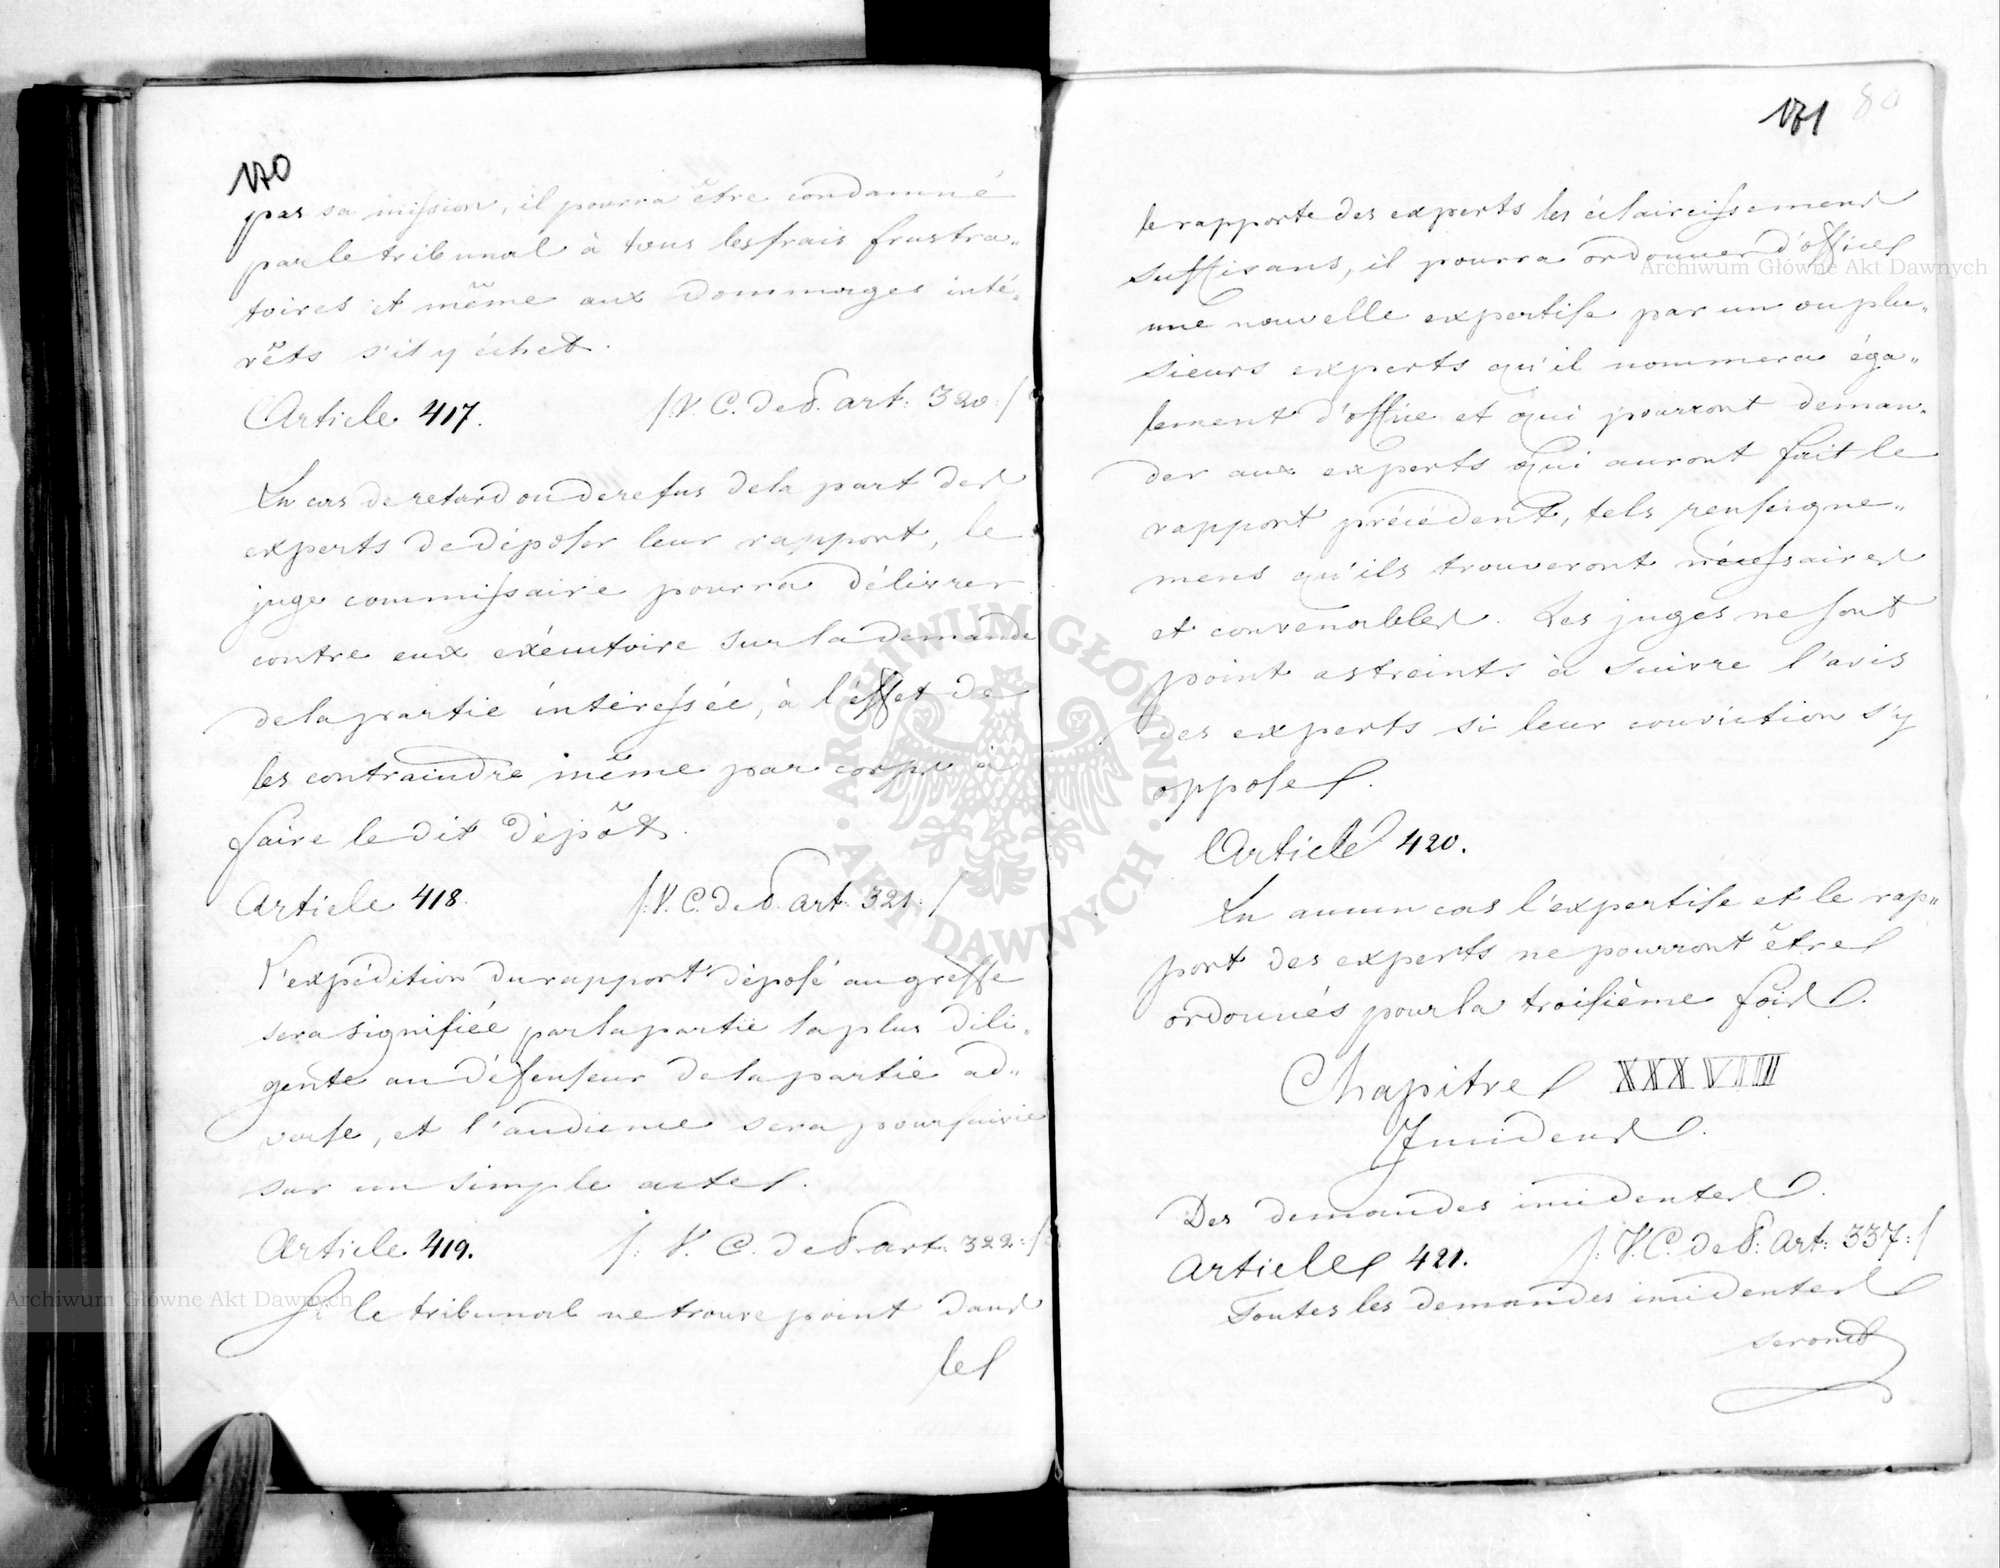 170
pas sa mission, il pourra être condamné
par le tribunal à tous les frais frustra„
toires et même aux dommages inté„
rêts s'il y échet.
Article 417. /:V. C. de P. art: 320:/
En cas de retard ou de refus de la part des
experts de déposer leur rapport, le
juge commissaire pourra délivrer
contre eux exécutoire sur la demande
de la partie intéressée, à l'effet de
les contraindre même par corps à
faire le dit dépôt.
Article 418. /:V. C. de P. art. 321:/
L'expédition du rapport déposé au greffe
sera signifiée par la partie la plus dili„
gente au défenseur de la partie ad„
verse, et l'audience sera poursuivie
sur un simple acte.
Article 419. /: V. C. de P. art. 322:/
Si le tribunal ne trouve point dans
le
171 80
le rapporte des experts les éclaircissemens
suffisans, il pourra ordonner d'office
une nouvelle expertise par un ou plu„
sieurs experts qu'il nommera éga„
lement d'office et qui pourront deman„
der aux experts qui auront fait le
rapport précédent, tels renseigne„
mens qu'ils trouveront nécessaires
et convenables. Les juges ne sont
point astreints à suivre l'avis
des experts si leur conviction s'y
oppose.
Article 420.
En aucun cas l'expertise et le rap„
port des experts ne pourront être
ordonnés pour la troisième fois.
Chapitre XXXVIII
Incidens.
Des demandes incidentes.
Article 421. /:V. C. de P: Art: 337:/
Toutes les demandes incidentes
seront
Archiwum Główne Akt Dawnych
Archiwum Główne Akt Dawnych
ARCHIWUM GŁÓWNE · AKT DAWNYCH ·